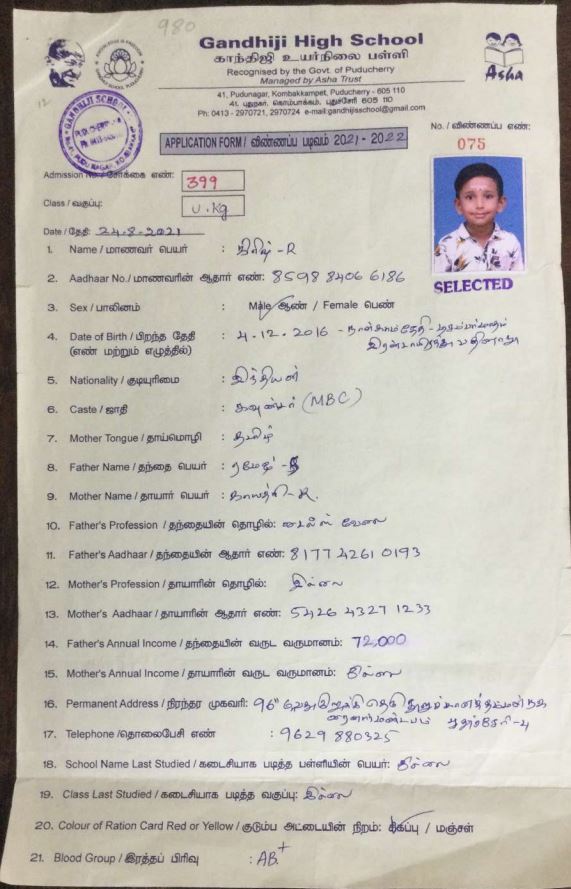 980
Gandhiji High School
காந்திஜி உயர்நிலை பள்ளி
Recognised by the Govt. of Puducherry
Managed by Asha Trust
Asha
41, Pudunagar, Kombakkampet, Puducherry - 605 110
41, புதுநகர், கொம்பாக்கம், புதுச்சேரி 605 110
Ph: 0413 - 2970721, 2970724 e-mail:gandhijisschool@gmail.com
12
GANDHIJI SCHOOL
APPLICATION FORM / விண்ணப்ப படிவம் 2021 - 2022
No. / விண்ணப்ப எண்:
075
Admission No / சேர்க்கை எண்: 399
Class / வகுப்பு: U.kg
Date / தேதி: 24-8-2021
SELECTED
1. Name / மாணவர் பெயர் : -R
2. Aadhaar No./ மாணவரின் ஆதார் எண்: 8598 8406 6186
3. Sex / பாலினம் : Male ஆண் / Female பெண்
4. Date of Birth / பிறந்த தேதி : 4.12.2016 -
(எண் மற்றும் எழுத்தில்)
5. Nationality / குடியுரிமை : இந்தியன்
6. Caste / ஜாதி : (MBC)
7. Mother Tongue / தாய்மொழி : தமிழ்
8. Father Name / தந்தை பெயர் : ரமேஷ் -
9. Mother Name / தாயார் பெயர் : காயத்ரி -R.
10. Father's Profession / தந்தையின் தொழில்: வேலை
11. Father's Aadhaar / தந்தையின் ஆதார் எண்: 8177 4261 0193
12. Mother's Profession / தாயாரின் தொழில்: இல்லை
13. Mother's Aadhaar / தாயாரின் ஆதார் எண்: 5426 4327 1233
14. Father's Annual Income / தந்தையின் வருட வருமானம்: 72,000
15. Mother's Annual Income / தாயாரின் வருட வருமானம்: இல்லை
16. Permanent Address / நிரந்தர முகவரி: 96
17. Telephone /தொலைபேசி எண் : 9629 880325
18. School Name Last Studied / கடைசியாக படித்த பள்ளியின் பெயர்: இல்லை
19. Class Last Studied / கடைசியாக படித்த வகுப்பு: இல்லை
20. Colour of Ration Card Red or Yellow / குடும்ப அட்டையின் நிறம்: சிகப்பு / மஞ்சள்
21. Blood Group / இரத்தப் பிரிவு : AB+